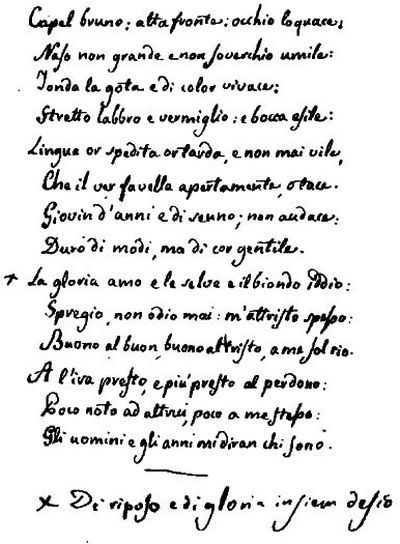 Capel bruno: alta fronte: occhio loquace:
Naso non grande e non soverchio umile:
Tonda la gota e di color vivace:
Stretto labbro e vermiglio: e bocca esile:
Lingua or spedita or tarda, e non mai vile,
Che il ver favella apertamente, o tace.
Giovin d'anni e di senno; non audace:
Duro di modi, ma di cor gentile.
+ La gloria amo e le selve e il biondo iddio:
Spregio, non odio mai: m'attristo spesso:
Buono al buon, buono al tristo, a me sol rio.
A l'ira presto, e più presto al perdono:
Poco noto ad altrui, poco a me stesso:
Gli uomini e gli anni mi diran chi sono.
+ Di riposo e di gloria insiem desio